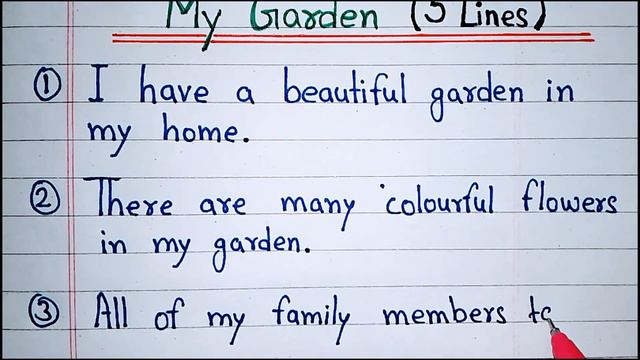 My Garden (5 Lines)
① I have a beautiful garden in
my home.
② There are many colourful flowers
in my garden.
③ All of my family members